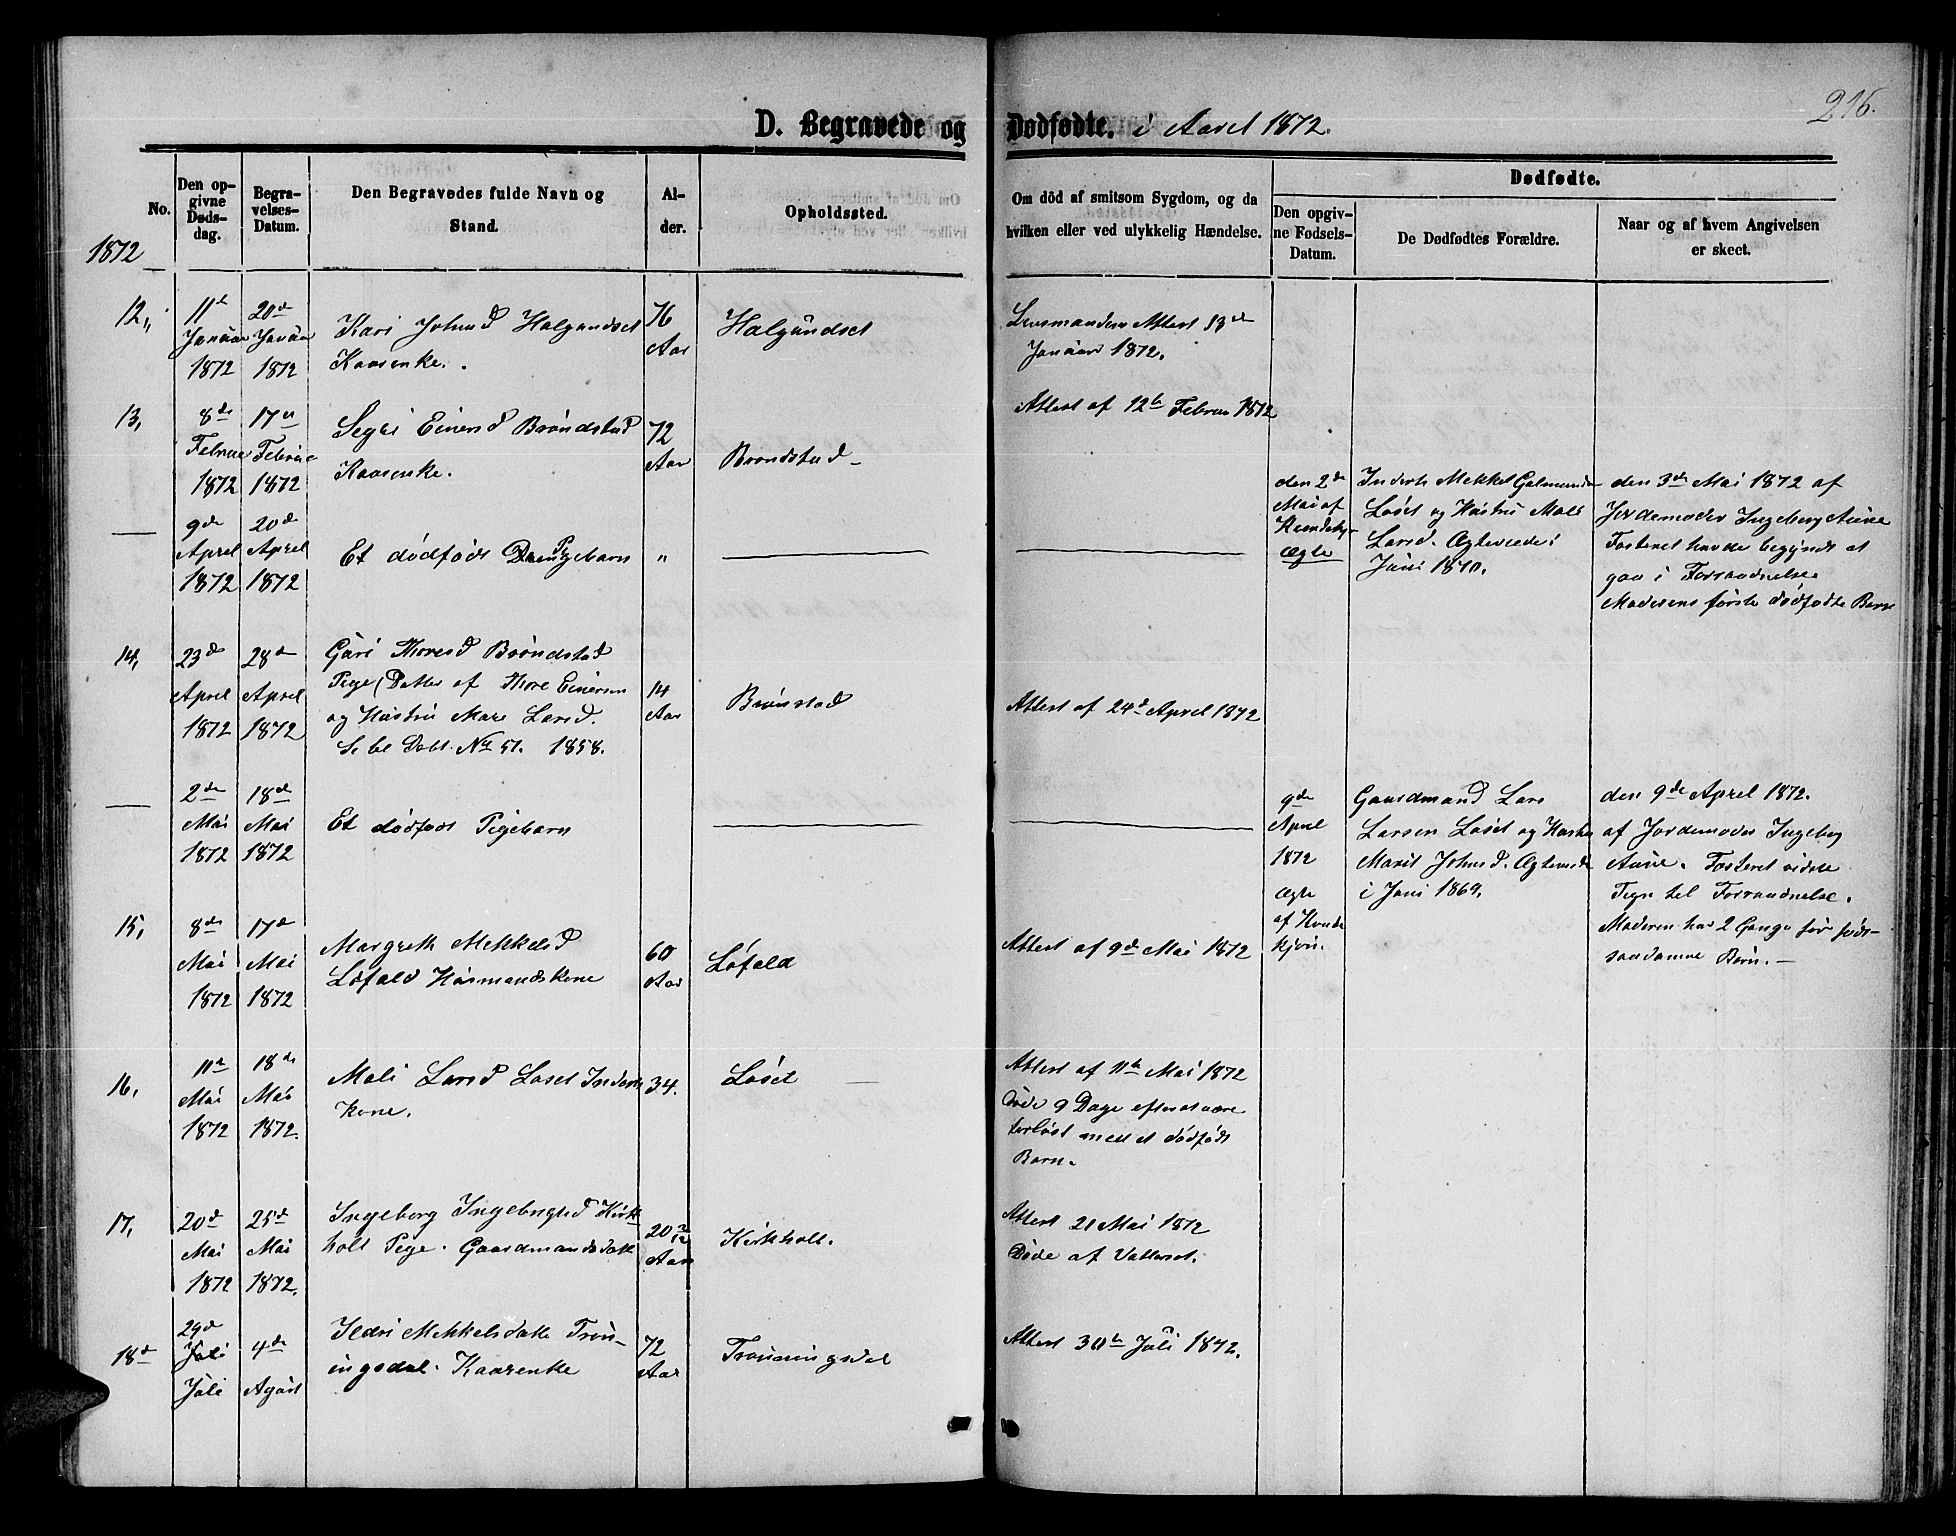 216.
D. Begravede og Dødfødte. i Aaret 1872.
No.
Den op-
givne
Døds-
dag.
Begra-
velses-
Datum.
Den Begravedes fulde Navn og
Stand.
Al-
der.
Opholdssted.
Om död af smitsom Sygdom, og da
hvilken eller ved ulykkelig Hændelse.
Dødfødte.
Den opgiv-
ne Fødsels-
Datum.
De Dødfødtes Forældre.
Naar og af hvem Angivelsen
er skeet.
1872
12,,
11te
Januar
1872
20de
Januar
1872
Kari Johnsd Halgundset
Kaarenke.
76
Aar
Halgundset
Lensmandens Attest 13de
Januar 1872.
13,
8de
Februar
1872
17de
Februar
1872
Segri Einersd Brøndstad
Kaarenke.
72
Aar
Brøndstad
Attest af 12te Februar 1872
9de
April
1872
20de
April
1872
Et dødfødt Drengebarn
"
den 2de
Mai af
Kvindekjøn
Ægte
Inderst Mekkel Galmunds
Løset og Hustru Mali
Larsd. Ægteviede i
Juni 1870.
den 3de Mai 1872 af
Jordemoder Ingeberg Aune
Fosteret havde begyndt at
gaa i Forraadnelse
Moderens første dødfødte Barn
14,
23de
April
1872
28de
April
1872
Guri Thoresd Brøndstad
Pige (Datter af Thore Einersen
og Hustru Mare Larsd.
Se bl Døbt. No 51. 1858.
14
Aar
Brønstad
Attest af 24de April 1872
2de
Mai
1872
18de
Mai
1872
Et dødfødt Pigebarn
9de
April
1872
Ægte
af Kvinde
kjøn.
Gaardmand Lars
Larsen Løset og Hustru
Marit Johnsd. Ægteviede
i Juni 1869.
den 9de April 1872.
af Jordemoder Ingebeg
Aune. Fosteret vidste
Tegn til Forraadnelse.
Moderen har 2 Gange før født
saadanne Børn.
15,
8de
Mai
1872
17de
Mai
1872
Margreth Mekkelsd
Løfald Husmandskone
60
Aar
Løfald
Attest af 9de Mai 1872
16,
11te
Mai
1872
18de
Mai
1872.
Mali Larsd Løset Inderst
Kone.
34.
Løset
Attest af 11te Mai 1872
Døde 9 Dage efter at være
forløst med et dødfødt
Barn.
17,
20de
Mai
1872
25de
Mai
1872.
Ingeborg Ingebrigtsd Kirk
holt Pige. Gaardmandsdatt
20
Aar
Kirkholt.
Attest 21 Mai 1872
Døde af Vattersot.
18de
29de
Juli
Juli
4de
Agust
Ildri Mekkelsdatte Trøn-
ingsdal. Kaarenke
72
Aar
Trønningsdal
Attest 30te Juli 1872.